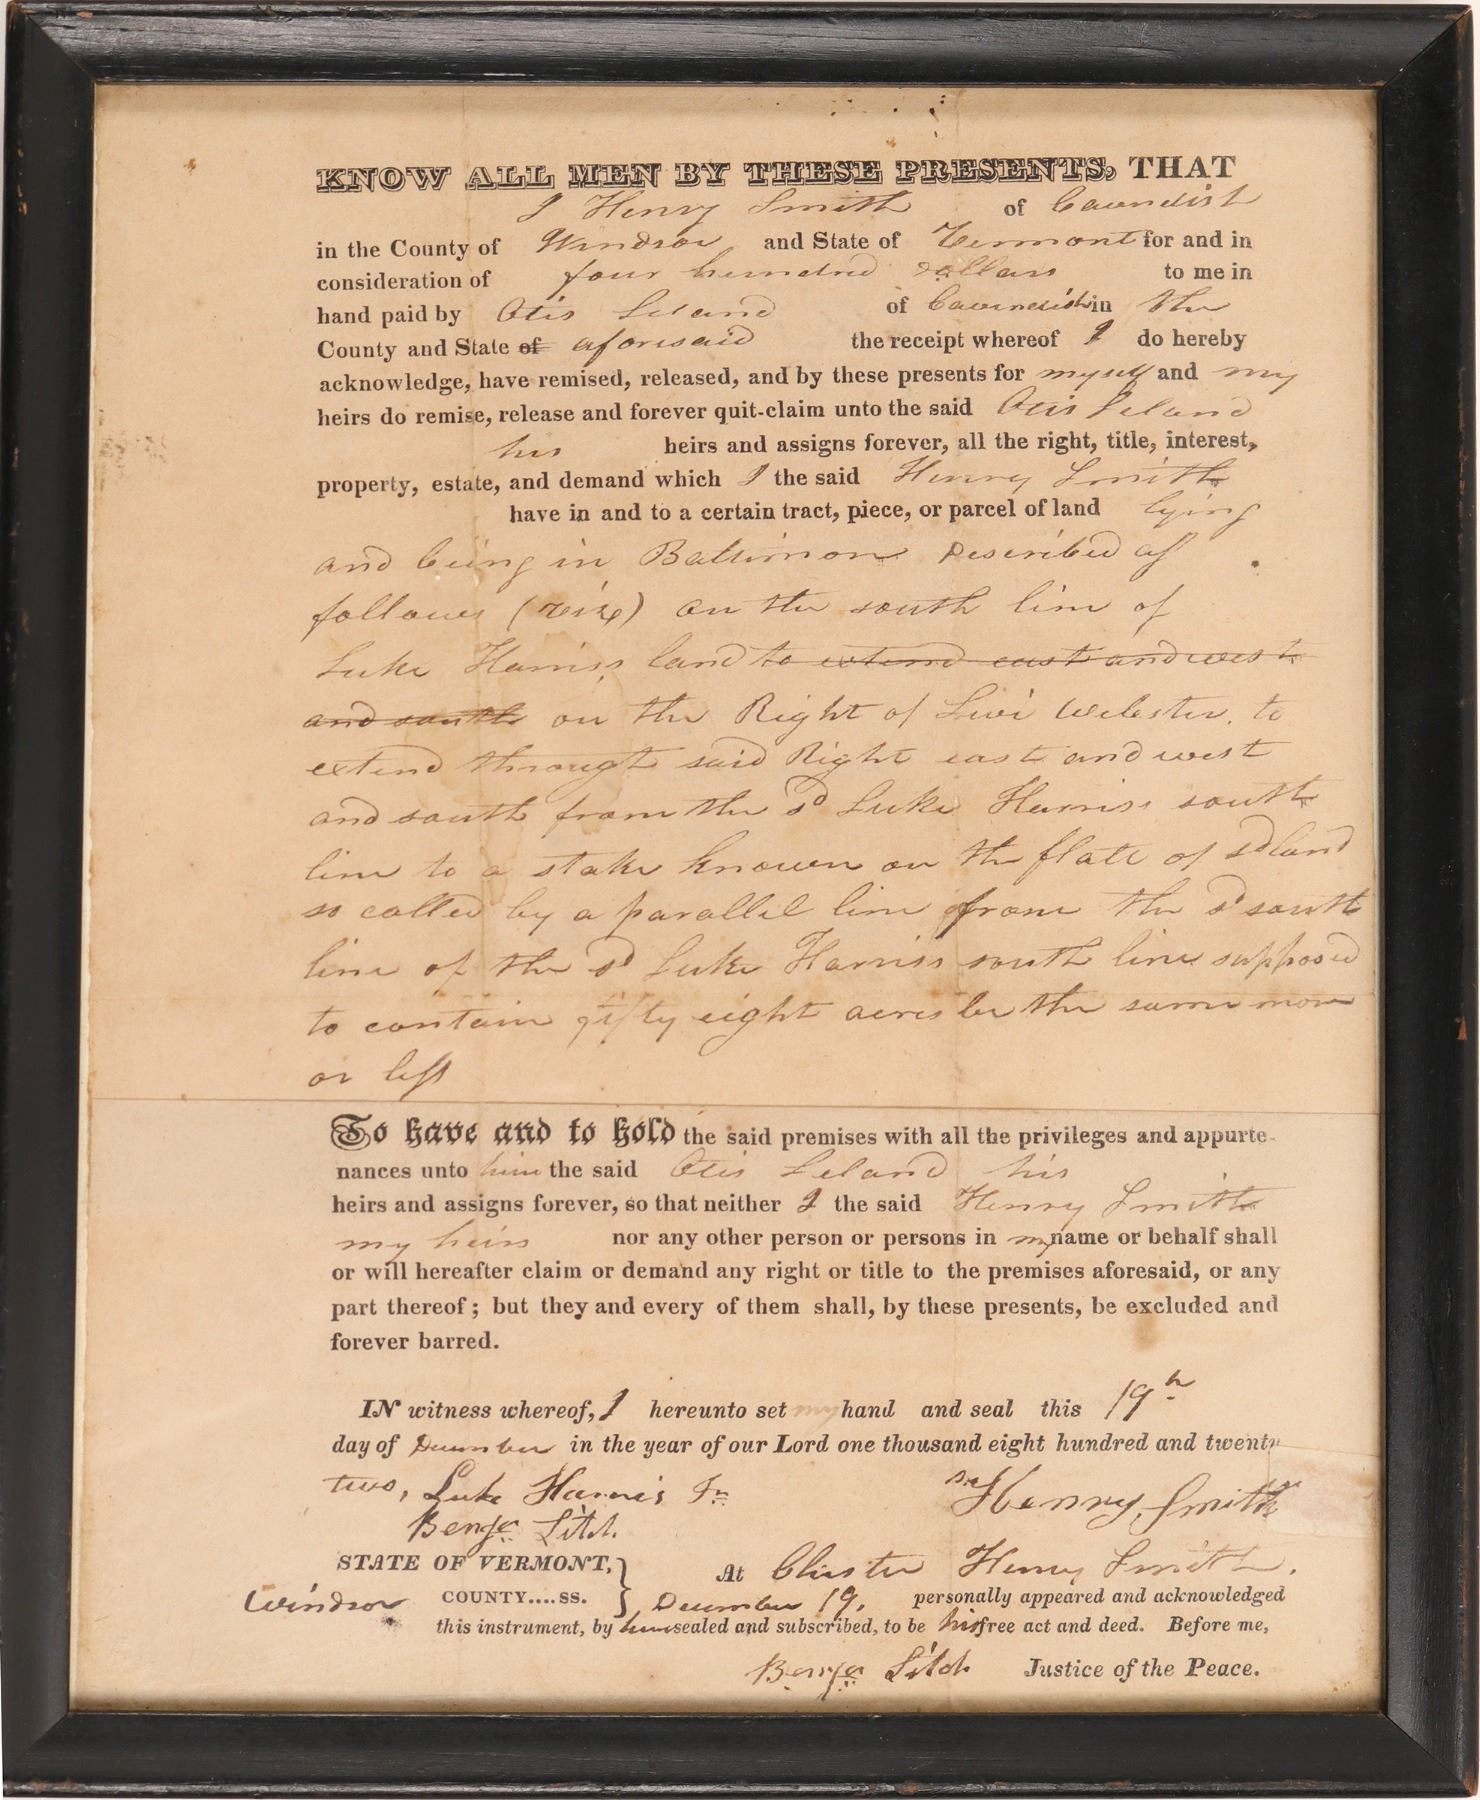 KNOW ALL MEN BY THESE PRESENTS, THAT
I Henry Smith of Cavendish
in the County of Windsor and State of Vermont for and in
consideration of four hundred dollars to me in
hand paid by Otis Leland of Cavendish in the
County and State of aforesaid the receipt whereof I do hereby
acknowledge, have remised, released, and by these presents for myself and my
heirs do remise, release and forever quit-claim unto the said Otis Leland
his heirs and assigns forever, all the right, title, interest,
property, estate, and demand which I the said Henry Smith
have in and to a certain tract, piece, or parcel of land lying
and being in Baltimore Described as
follows (viz) on the south line of
Luke Harriss land to extend east and west
and south on the Right of Levi Webster, to
extend through said Right east and west
and south from the sd Luke Harriss south
line to a stake known on the flatt of sd land
so called by a parallel line from the sd south
line of the sd Luke Harriss south line supposed
to contain fifty eight acres be the same more
or less
To have and to hold the said premises with all the privileges and appurte-
nances unto him the said Otis Leland his
heirs and assigns forever, so that neither I the said Henry Smith
my heirs nor any other person or persons in my name or behalf shall
or will hereafter claim or demand any right or title to the premises aforesaid, or any
part thereof; but they and every of them shall, by these presents, be excluded and
forever barred.
IN witness whereof, I hereunto set my hand and seal this 19th
day of December in the year of our Lord one thousand eight hundred and twenty
two, Luke Harris Jr Henry Smith
Benja Litch
STATE OF VERMONT, } At Chester Henry Smith.
Windsor COUNTY....SS. } December 19, personally appeared and acknowledged
this instrument, by him sealed and subscribed, to be his free act and deed. Before me,
Benja Litch Justice of the Peace.